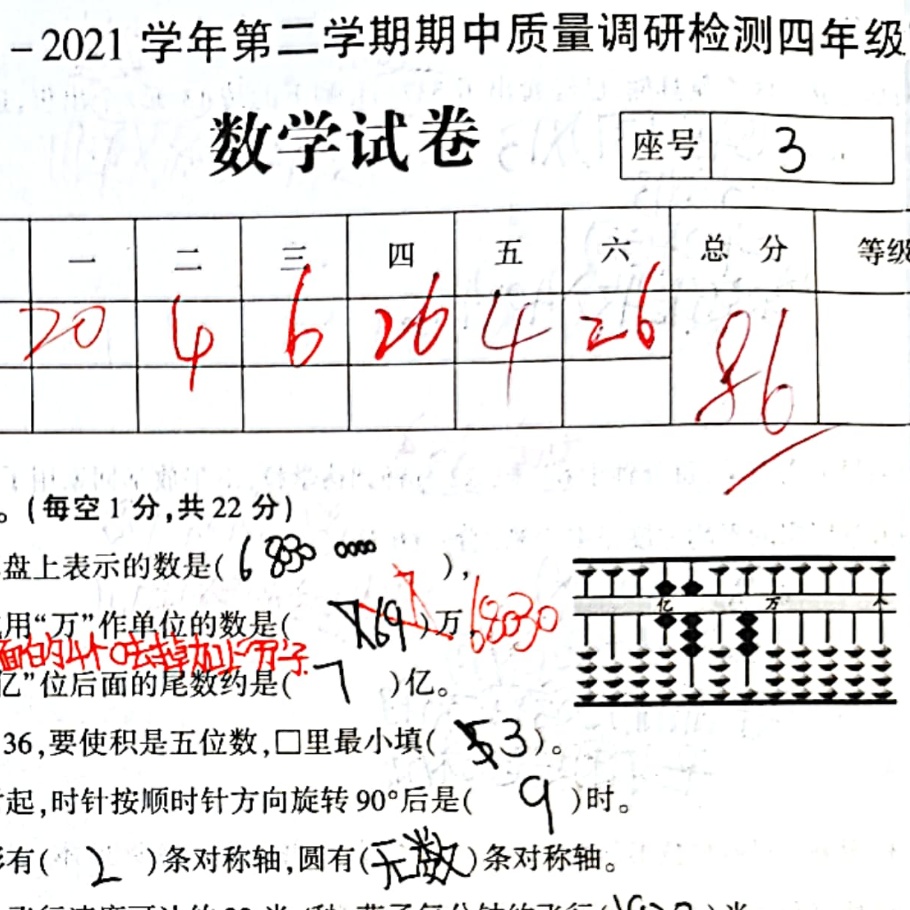 -2021学年第二学期期中质量调研检测四年级
数学试卷
座号 3
一 二 三 四 五 六 总分 等级
20 4 6 26 4 26 86
。(每空1分,共22分)
盘上表示的数是(68030 0000),
用“万”作单位的数是( 69)万, 68030
面的4个0去掉加上“万”字
亿”位后面的尾数约是(7)亿。
36,要使积是五位数,□里最小填(3)。
起,时针按顺时针方向旋转90°后是(9)时。
有(2)条对称轴,圆有(无数)条对称轴。
亿 万 个